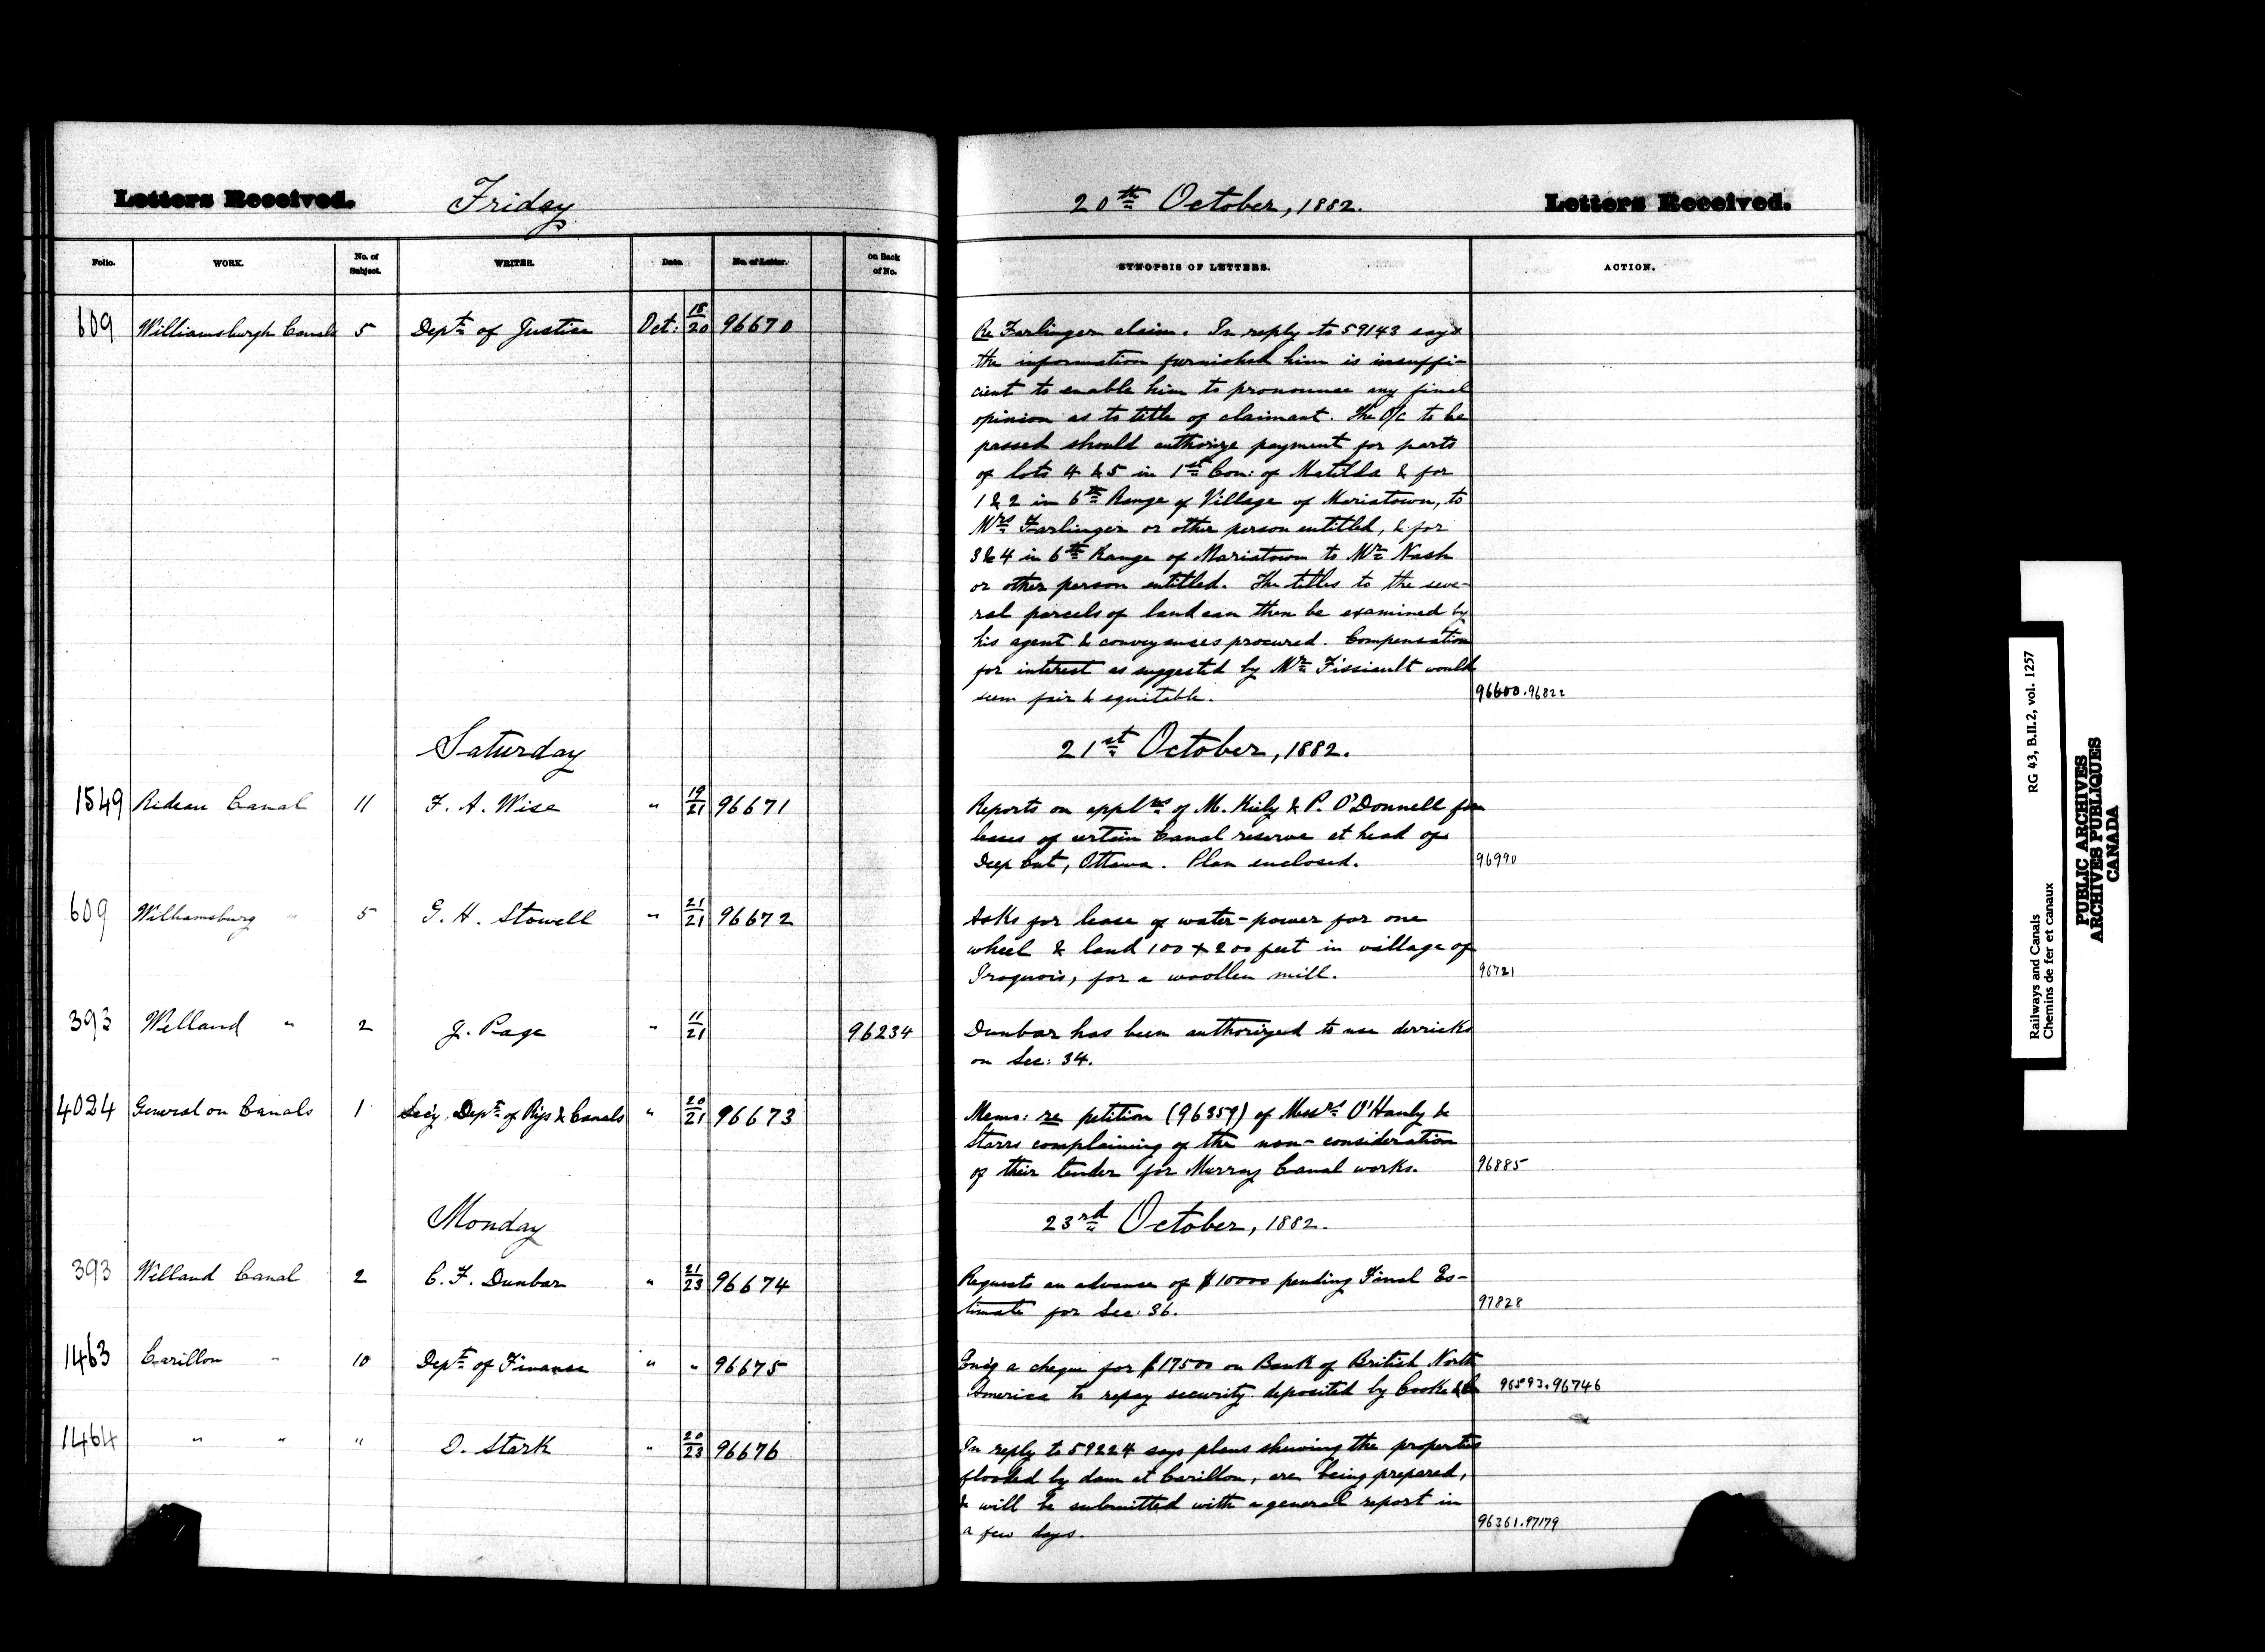 Letters Received. Friday 20th October, 1882. Letters Received.
Folio. WORK. No. of Subject. WRITER. Date. No. of Letter. on Back of No. SYNOPSIS OF LETTERS. ACTION.
609 Williamsburgh Canals 5 Dept of Justice Oct: 18/20 96670
Re Farlinger claim. In reply to 59143 says
the information furnished him is insuffi-
cient to enable him to pronounce any final
opinion as to title of claimant. The O/c to be
passed should authorize payment for parts
of lots 4 & 5 in 1st Con: of Matilda & for
1 & 2 in 6th Range of Village of Mariatown, to
Mrs Farlinger or other person entitled, & for
3 & 4 in 6th Range of Mariatown to Mr Nash
or other person entitled. The titles to the seve-
ral parcels of land can then be examined by
his agent & conveyances procured. Compensation
for interest as suggested by Mr Fissiault would
seem fair & equitable. 96600.96822
Saturday 21st October, 1882.
1549 Rideau Canal 11 F. A. Wise " 19/21 96671
Reports on applns of M. Kiely & P. O'Donnell for
leases of certain Canal reserve at head of
Deep Cut, Ottawa. Plan enclosed. 96990
609 Williamsburg " 5 G. H. Stowell " 21/21 96672
Asks for lease of water-power for one
wheel & land 100 x 200 feet in village of
Iroquois, for a woollen mill. 96721
393 Welland " 2 J. Page " 11/21 96234
Dunbar has been authorized to use derricks
on Sec: 34.
4024 General on Canals 1 Secy. Dept of Rys & Canals " 20/21 96673
Memo: re petition (96359) of Messrs O'Hanly &
Starrs complaining of the non-consideration
of their tender for Murray Canal works. 96885
Monday 23rd October, 1882.
393 Welland Canal 2 C. F. Dunbar " 21/23 96674
Requests an advance of $10000 pending Final Es-
timate for Sec: 36. 97828
1463 Carillon " 10 Dept of Finance " " 96675
Encg a cheque for $17500 on Bank of British North
America to repay security deposited by Cooke & Co 96593.96746
1464 " " " D. Stark " 20/23 96676
In reply to 59224 says plans shewing the properties
flooded by dam at Carillon, are being prepared,
& will be submitted with a general report in
a few days. 96361.97179
Railways and Canals RG 43, B.II.2, vol. 1257
Chemins de fer et canaux
PUBLIC ARCHIVES
ARCHIVES PUBLIQUES
CANADA